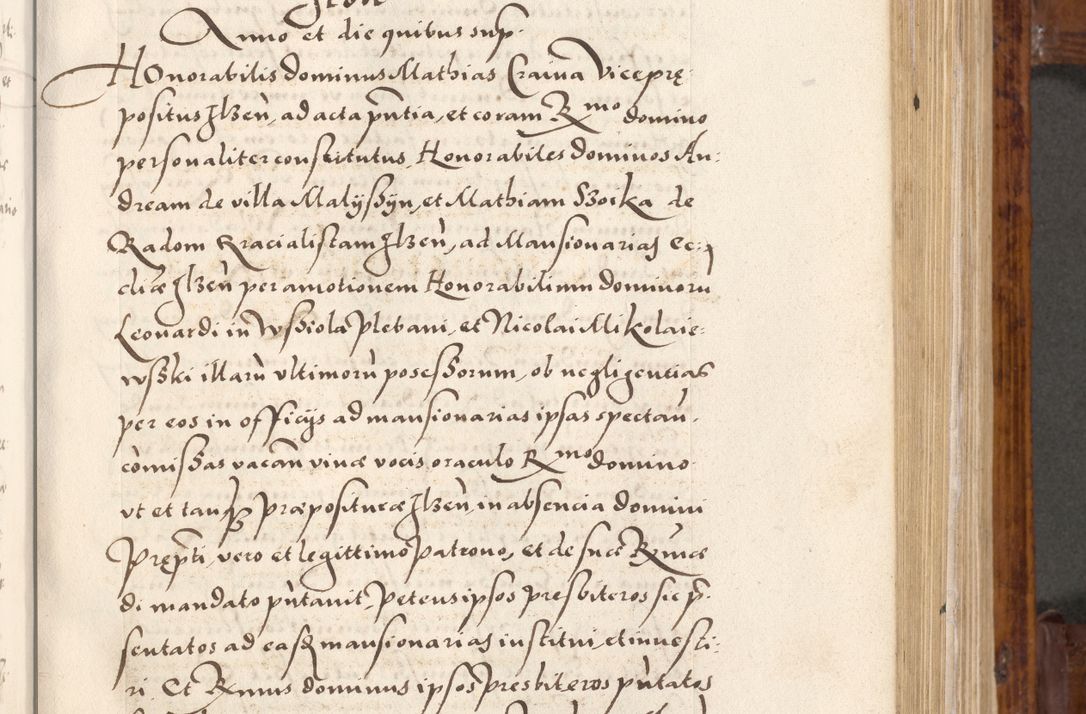 Anno et die quibus sup.
Honorabilis dominus Mathias Craiua Viceprę
positus Ilzeñ, ad acta pñtia, et coram Rmo domino
personaliter constitutus, Honorabiles dominos An:
dream de villa Malÿssÿn, et Mathiam Szoska de
Radom Racialistam Ilzeñ, ad Mansionarias ec:
cliæ Ilzeñ per amotionem Honorabilium dominorũ
Leonardi in Wssiola Plebani, et Nicolai Mikolaie:
wsski illarũ vltimorũ possessorum, ob negligentias
per eos in officijs ad mansionarias ipsas spectañ.
cõmissas vacañ viuæ vocis oraculo Rmo domino
vt et tanq̃ Præpositurcæ Ilzeñ, in absencia domini
Pręp̃ti, vero et legittimo Patrono, et de suæ Rmæ
di mandato pñtauit, Petens ipsos presbiteros sic p̃:
sentatos ad easq̃ mansionarias institui, et inuesti:
ri. Et Rmus dominus ipsos presbiteros pñtatos